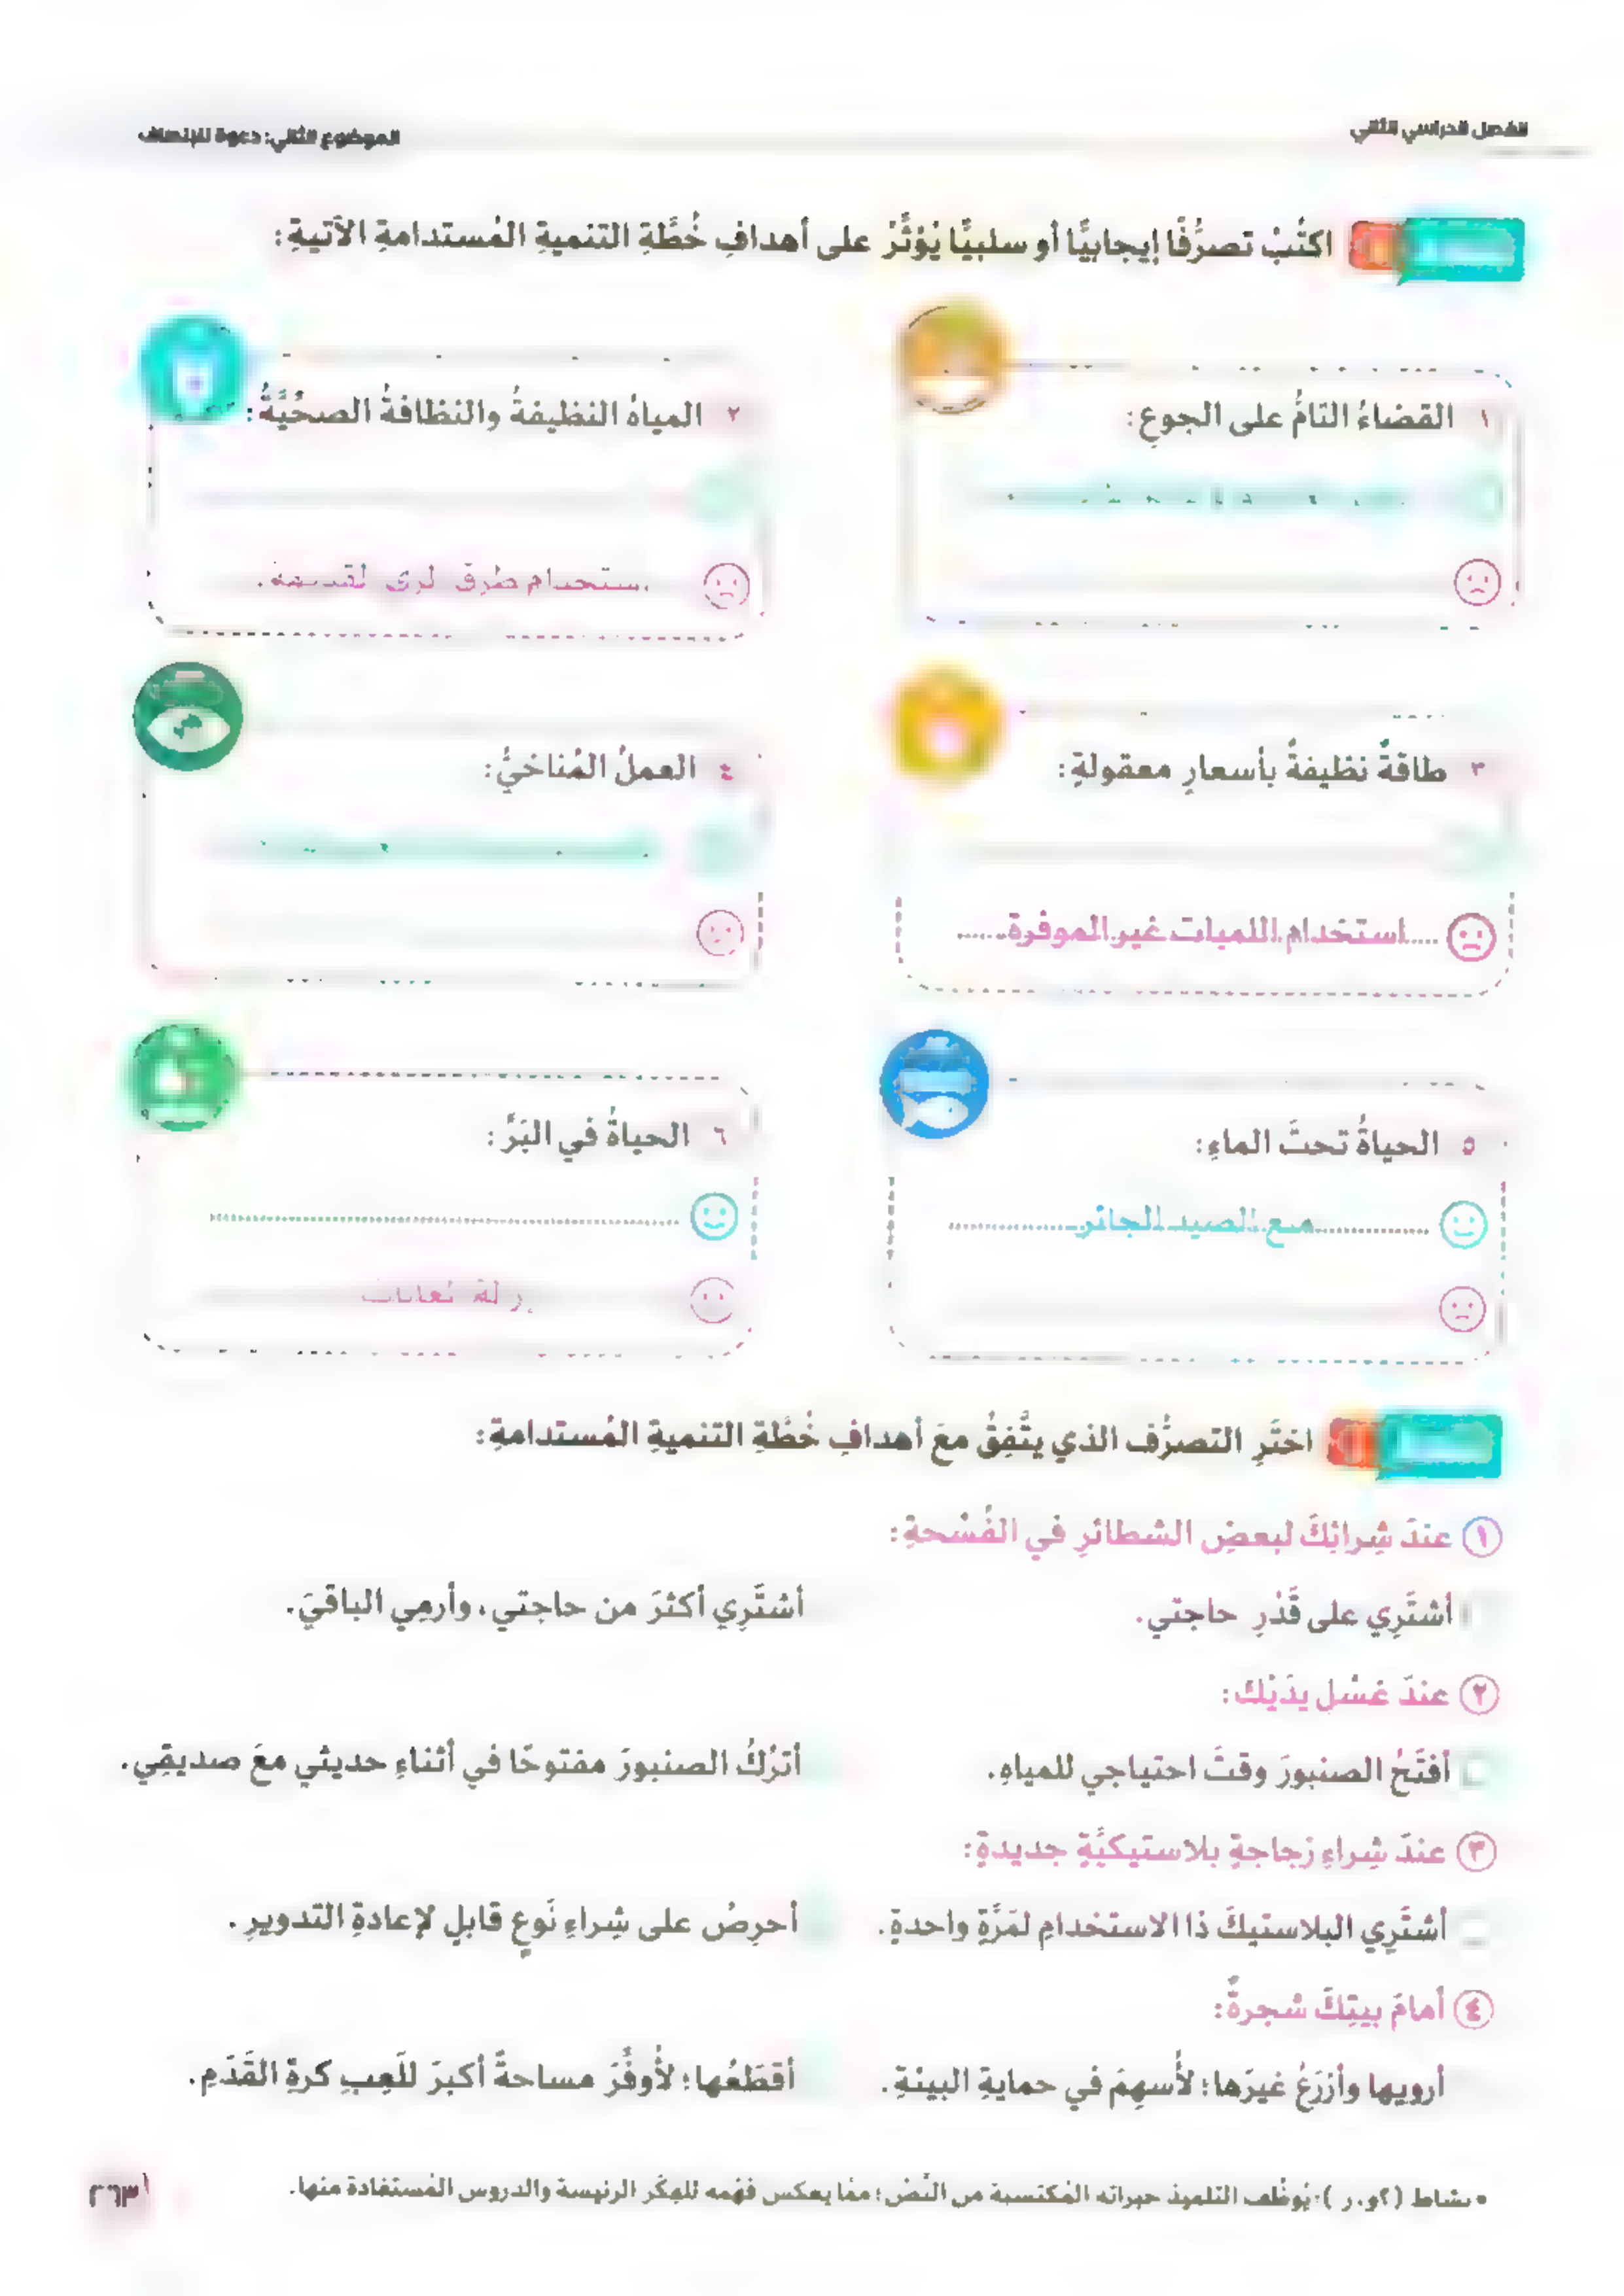 الفصل الدراسي الثاني
الموضوع الثاني: دعوة للإنصاف
اكتُبْ تصرُّفًا إيجابيًّا أو سلبيًّا يُؤثِّرُ على أهدافِ خُطَّةِ التنميةِ المُستدامةِ الآتيةِ:
١ القضاءُ التامُّ على الجوعِ:
٢ المياهُ النظيفةُ والنظافةُ الصحِّيَّةُ:
استخدام طرق الري القديمة.
٣ طاقةٌ نظيفةٌ بأسعارٍ معقولةٍ:
استخدام اللمبات غير الموفرة
٤ العملُ المُناخيُّ:
٥ الحياةُ تحتَ الماءِ:
منع الصيد الجائر
٦ الحياةُ في البَرِّ:
اختَرِ التصرُّف الذي يتَّفِقُ معَ أهدافِ خُطَّةِ التنميةِ المُستدامةِ:
١ عندَ شِرائِكَ لبعضِ الشطائرِ في الفُسْحةِ:
أشتَرِي على قَدْرِ حاجتي.
أشتَرِي أكثرَ من حاجتي، وأرمِي الباقيَ.
٢ عندَ غسْلِ يدَيْكَ:
أفتَحُ الصنبورَ وقتَ احتياجي للمياهِ.
أترُكُ الصنبورَ مفتوحًا في أثناءِ حديثي معَ صديقِي.
٣ عندَ شِراءِ زجاجةٍ بلاستيكيَّةٍ جديدةٍ:
أشتَرِي البلاستيكَ ذا الاستخدامِ لمَرَّةٍ واحدةٍ.
أحرِصُ على شِراءِ نَوعٍ قابلٍ لإعادةِ التدويرِ.
٤ أمامَ بيتِكَ شجرةٌ:
أرويها وأزرَعُ غيرَها؛ لأُسهِمَ في حمايةِ البيئةِ.
أقطَعُها؛ لأُوفِّرَ مساحةً أكبرَ للَعِبِ كرةِ القَدَمِ.
• نشاط (٢و،ر): يُوظِّف التلميذ خبراته المُكتسبة من النَّص؛ ممَّا يعكس فهْمه للفِكَر الرئيسة والدروس المُستفادة منها.
٢٦٣